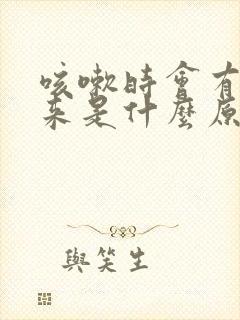 咳嗽時會有
來是什麼原
與笑生